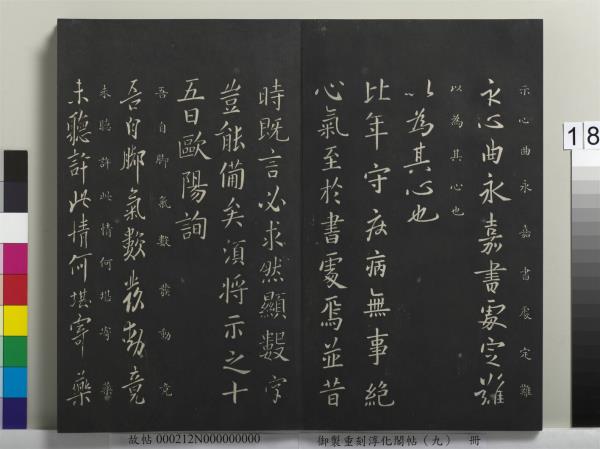 示心曲永嘉書處定難
示心曲永嘉書處定難
以為其心也
以為其心也
比年守疾病無事絕
心氣至於書處焉並昔
時既言必求然顯數字
豈能備矣須將示之十
五日歐陽詢
吾自腳氣數發動竟
吾自腳氣數發動竟
未聽許此情何堪寄藥
未聽許此情何堪寄藥
18
故帖 000212N000000000
御製重刻淳化閣帖（九） 冊